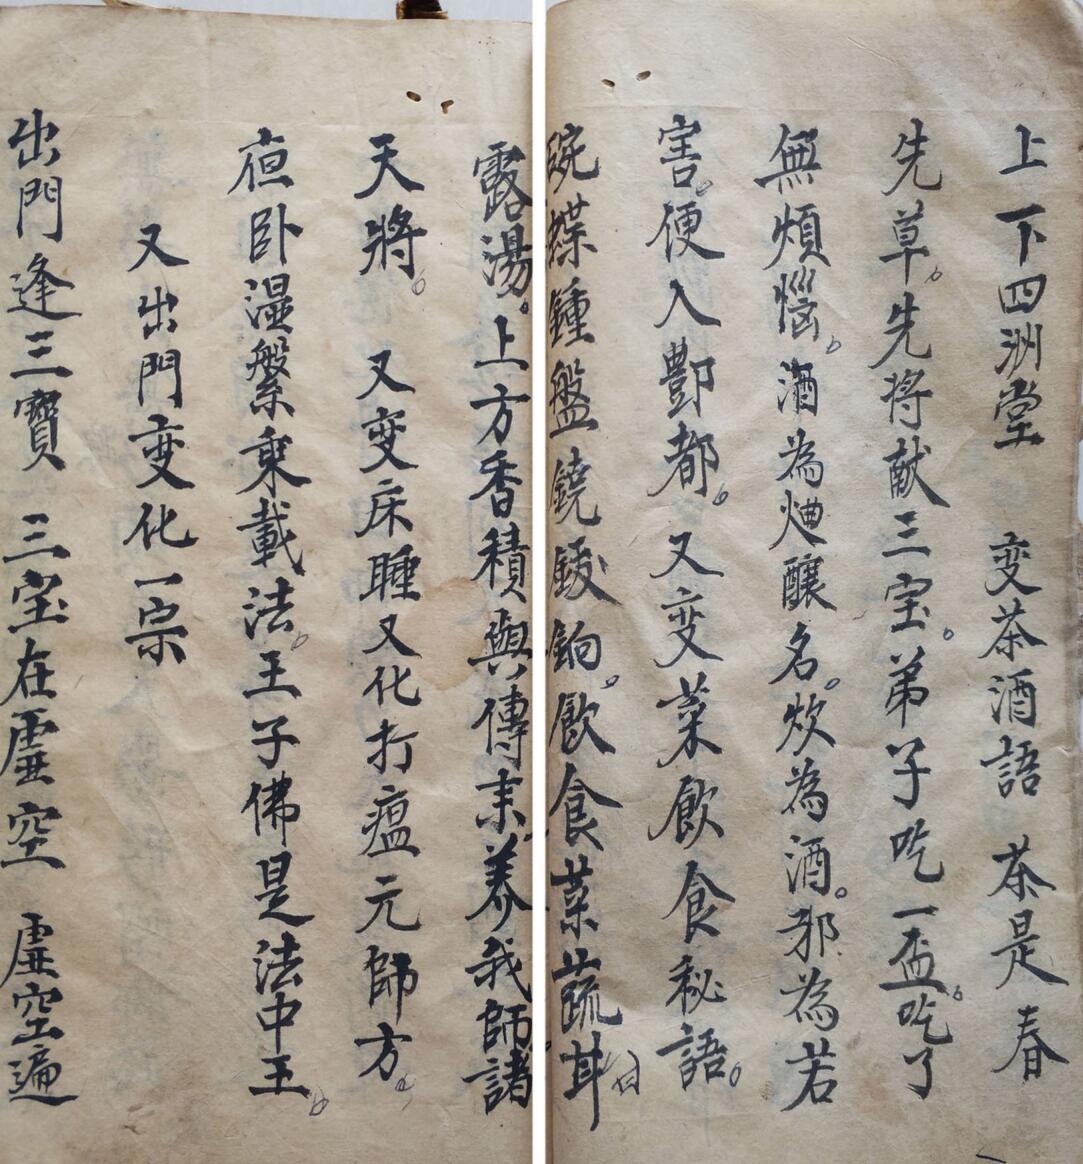 上下四洲堂　变茶酒語　茶是春
先草。先将献三宝。弟子吃一盃。吃了
無煩惱。酒為醩釀名。炊為酒。邪為若
害。便入酆都。又变菜飲食秘語。
碗楪鍾盤鐃鍐銄。飲食菜蔬耳
露湯。上方香積與傳来养我師諸
天將。　又变床睡又化打瘟元師方。
夜卧湿槃乘載法。王子佛是法中王。
又出門变化一宗
出門逢三寶　三宝在虛空　虛空遍